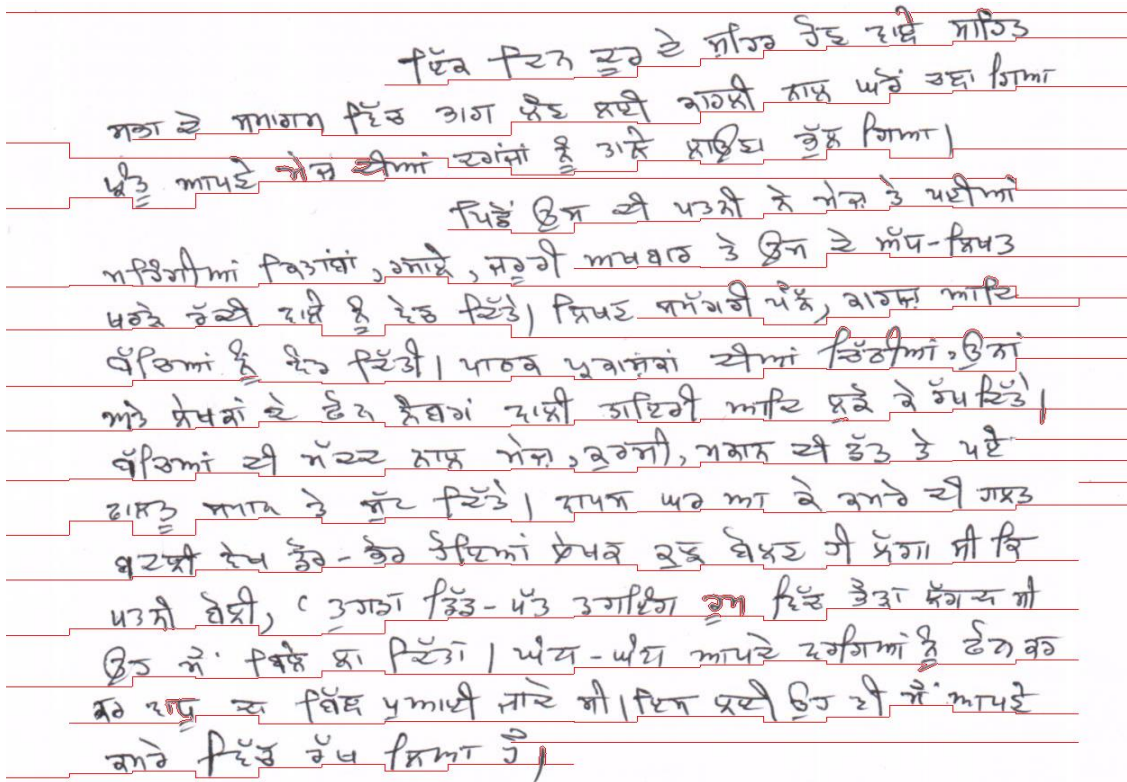 ਇੱਕ ਦਿਨ ਦੂਰ ਦੇ ਸ਼ਹਿਰ ਹੋਣ ਵਾਲੇ ਸਾਹਿਤ
ਸਭਾ ਦੇ ਸਮਾਗਮ ਵਿੱਚ ਭਾਗ ਲੈਣ ਲਈ ਕਾਹਲੀ ਨਾਲ ਘਰੋਂ ਚਲਾ ਗਿਆ
ਪ੍ਰੰਤੂ ਆਪਣੇ ਮੇਜ਼ ਦੀਆਂ ਦਰਾਜ਼ਾਂ ਨੂੰ ਤਾਲੇ ਲਾਉਣਾ ਭੁੱਲ ਗਿਆ।
ਪਿਛੋਂ ਉਸ ਦੀ ਪਤਨੀ ਨੇ ਮੇਜ਼ ਤੇ ਪਈਆਂ
ਮਹਿੰਗੀਆਂ ਕਿਤਾਬਾਂ, ਰਸਾਲੇ, ਜਰੂਰੀ ਅਖਬਾਰ ਤੇ ਉਸ ਦੇ ਅੱਧ-ਲਿਖਤ
ਖਰੜੇ ਰੱਦੀ ਵਾਲੇ ਨੂੰ ਵੇਚ ਦਿੱਤੇ। ਲਿਖਣ ਸਮੱਗਰੀ ਪੈੱਨ, ਕਾਗਜ਼ ਆਦਿ
ਬੱਚਿਆਂ ਨੂੰ ਦੇ ਦਿੱਤੀ। ਪਾਠਕ ਪ੍ਰਕਾਸ਼ਕਾਂ ਦੀਆਂ ਚਿੱਠੀਆਂ, ਉਨਾਂ
ਅਤੇ ਲੇਖਕਾਂ ਦੇ ਫੋਨ ਨੰਬਰਾਂ ਵਾਲੀ ਡਾਇਰੀ ਆਦਿ ਲਕੋ ਕੇ ਰੱਖ ਦਿੱਤੇ।
ਬੱਚਿਆਂ ਦੀ ਮੱਦਦ ਨਾਲ ਮੇਜ਼, ਕੁਰਸੀ, ਮਕਾਨ ਦੀ ਛੱਤ ਤੇ ਪਏ
ਫਾਲਤੂ ਸਮਾਨ ਤੇ ਸੁੱਟ ਦਿੱਤੇ। ਵਾਪਸ ਘਰ ਆ ਕੇ ਕਮਰੇ ਦੀ ਹਾਲਤ
ਬਦਲੀ ਵੇਖ ਭੋਰ-ਭੋਰ ਹੋਇਆ ਲੇਖਕ ਕੁਝ ਬੋਲਣ ਹੀ ਲੱਗਾ ਸੀ ਕਿ
ਪਤਨੀ ਬੋਲੀ, ( ਤੁਹਾਡਾ ਨਿੱਕ-ਸੁੱਕ ਡਰਾਇੰਗ ਰੂਮ ਵਿੱਚ ਭੈੜਾ ਲੱਗਦਾ ਸੀ
ਉਹ ਮੈਂ ਟਿਕਾਣੇ ਲਾ ਦਿੱਤਾ। ਘੰਟਾ-ਘੰਟਾ ਆਪਣੇ ਵਰਗਿਆਂ ਨੂੰ ਫੋਨ ਕਰ
ਕਰ ਵਾਧੂ ਦਾ ਬਿੱਲ ਪੁਆਈ ਜਾਂਦੇ ਸੀ। ਇਸ ਲਈ ਉਹ ਵੀ ਮੈਂ ਆਪਣੇ
ਕਮਰੇ ਵਿੱਚ ਰੱਖ ਲਿਆ ਹੈ।